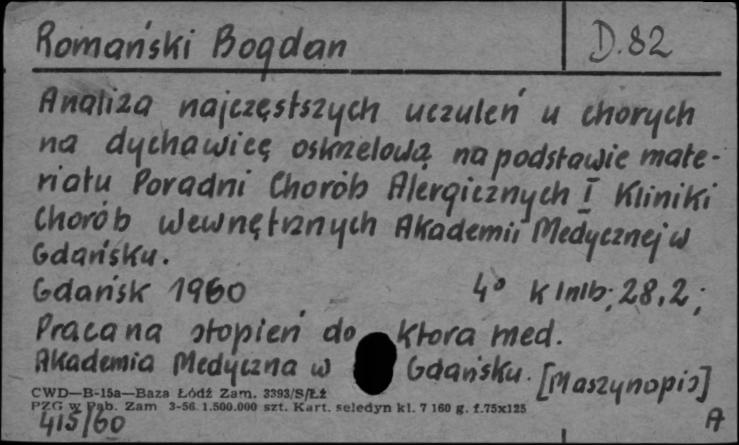 Romański Bogdan D.82
Analiza najczęstszych uczuleń u chorych
na dychawicę oskrzelową na podstawie mate-
riału Poradni Chorób Alergicznych I Kliniki
Chorób Wewnętrznych Akademii Medycznej w
Gdańsku.
Gdańsk 1960 4° k lnlb; 28,2;
Praca na stopień doktora med.
Akademia Medyczna w Gdańsku. [Maszynopis]
CWD—B-15a—Baza Łódź Zam. 3393/S/Łź
PZG w Pab. Zam 3-56 1.500.000 szt. Kart. seledyn kl. 7 160 g. f.75x125
415/60 A